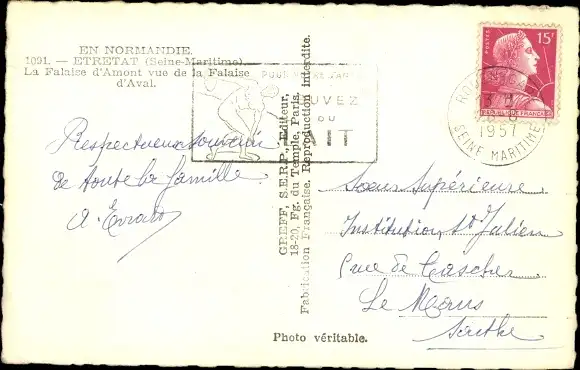 EN NORMANDIE.
1091. — ETRETAT (Seine-Maritime).
La Falaise d'Amont vue de la Falaise
d'Aval.
POUR
BUVEZ
DU
LAIT
POSTES
15F
REPUBLIQUE FRANÇAISE
ROUEN
1957
SEINE MARITIME
Respectueux souvenir
de toute la famille
GREFF, S.E.R.P., Editeur,
18-20, Fg. du Temple, Paris.
Fabrication Française. Reproduction interdite.
Soeur Supérieure
Institution St Julien
rue de
Le Mans
Sarthe
Photo véritable.